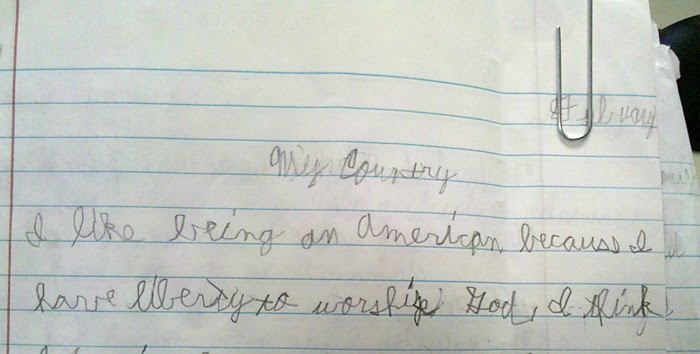 My Country
I like being an American, because I
have liberty to worship God, I think